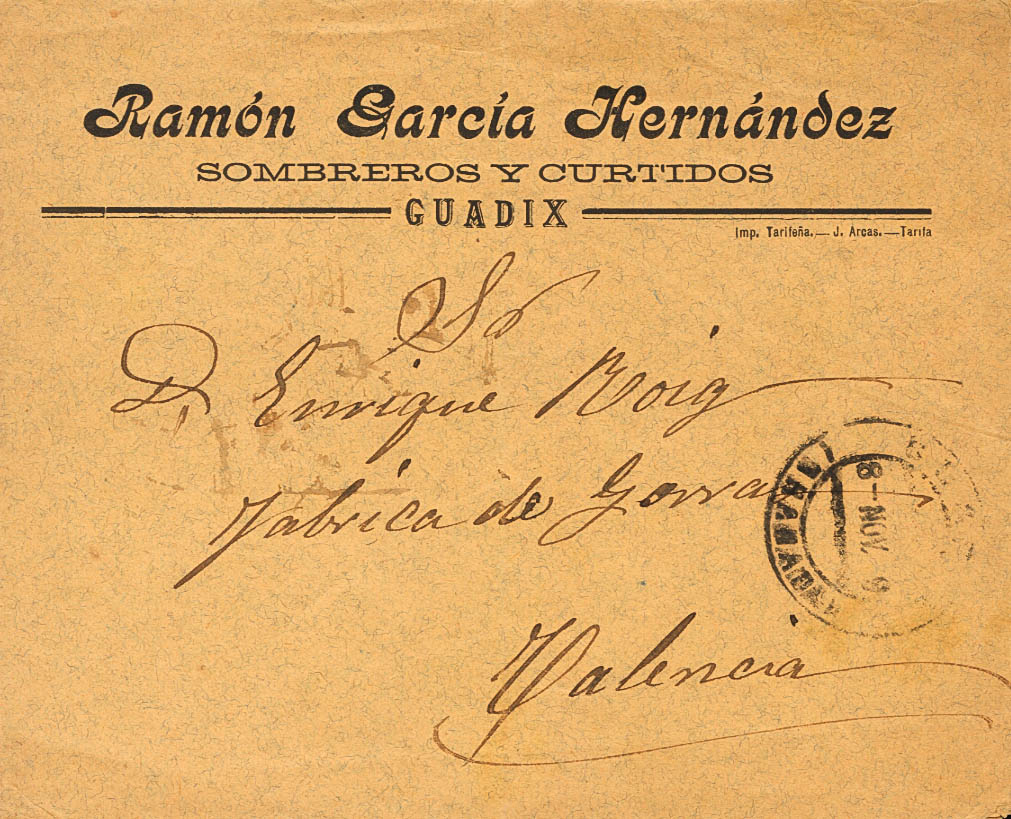 Ramón García Hernández
SOMBREROS Y CURTIDOS
GUADIX
Imp. Tarifeña.— J. Arcas.—Tarifa
Sr
D. Enrique Roig
Fábrica de Gorras
Valencia
8-NOV